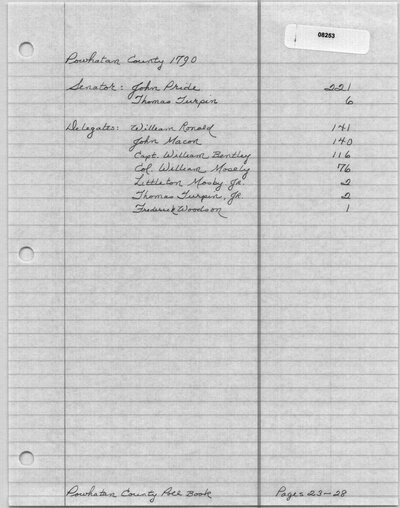 08253
Powhatan County 1790
Senator: John Pride 221
Thomas Turpin 6
Delegates: William Ronald 141
John Macon 140
Capt. William Bentley 116
Col. William Mosely 76
Littleton Mosby Jr. 2
Thomas Turpin, Jr. 2
Frederick Woodson 1
Powhatan County Poll Book Pages 23-28